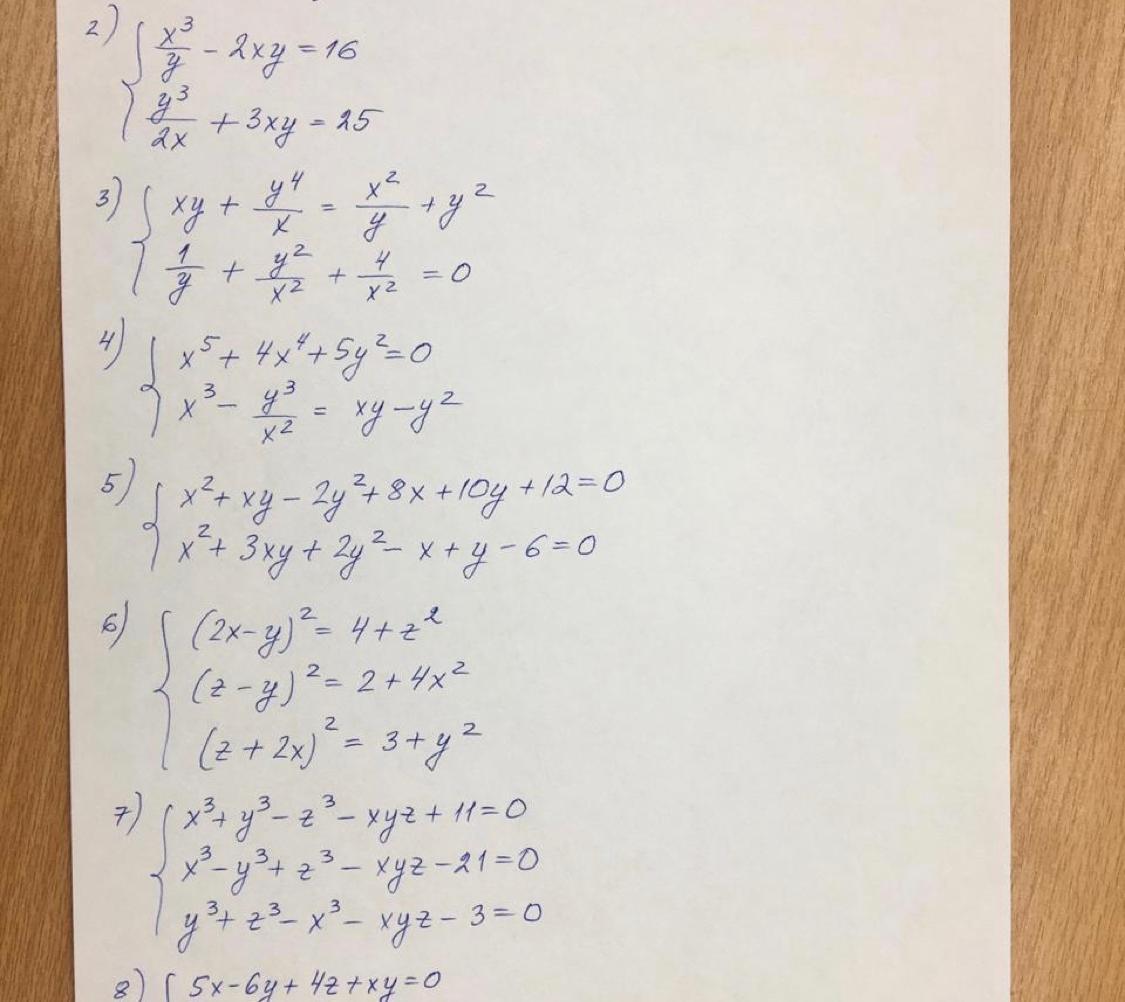 2) { x³/y - 2xy = 16
y³/2x + 3xy = 25
3) { xy + y⁴/x = x²/y + y²
1/y + y²/x² + 4/x² = 0
4) { x⁵ + 4x⁴ + 5y² = 0
x³ - y³/x² = xy - y²
5) { x² + xy - 2y² + 8x + 10y + 12 = 0
x² + 3xy + 2y² - x + y - 6 = 0
6) { (2x-y)² = 4 + z²
(z-y)² = 2 + 4x²
(z+2x)² = 3 + y²
7) { x³ + y³ - z³ - xyz + 11 = 0
x³ - y³ + z³ - xyz - 21 = 0
y³ + z³ - x³ - xyz - 3 = 0
8) { 5x - 6y + 4z + xy = 0